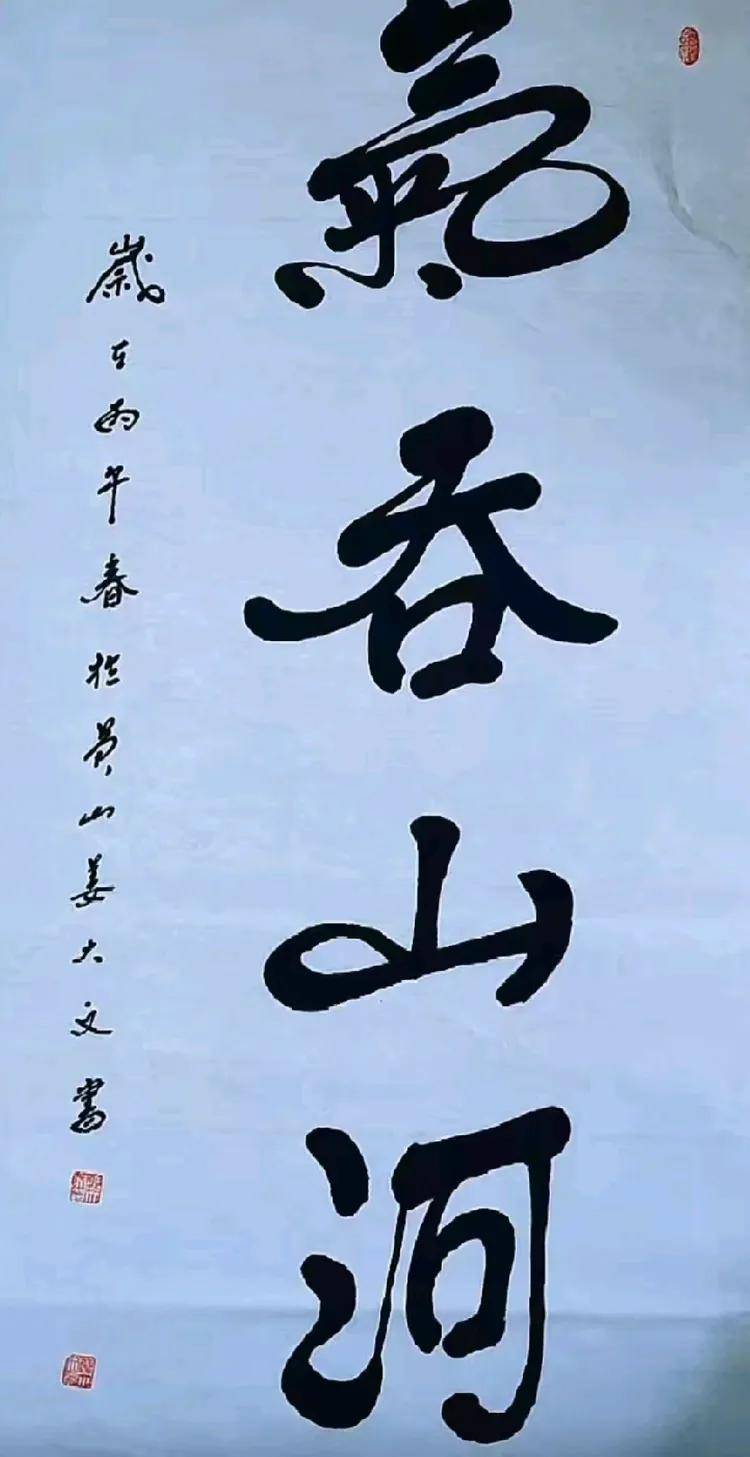 氣吞山河
歲在丙午春於員山姜大文書